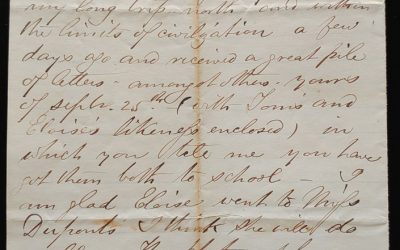 my long trip north and within
the limits of civilization a few
days ago and received a great pile
of letters - amongst others - yours
of septr. 25th (with Tom's and
Eloise's likeness enclosed) in
which you tele me you have
got them both to school - I
am glad Eloise went to Miss
Duponts I think she will do